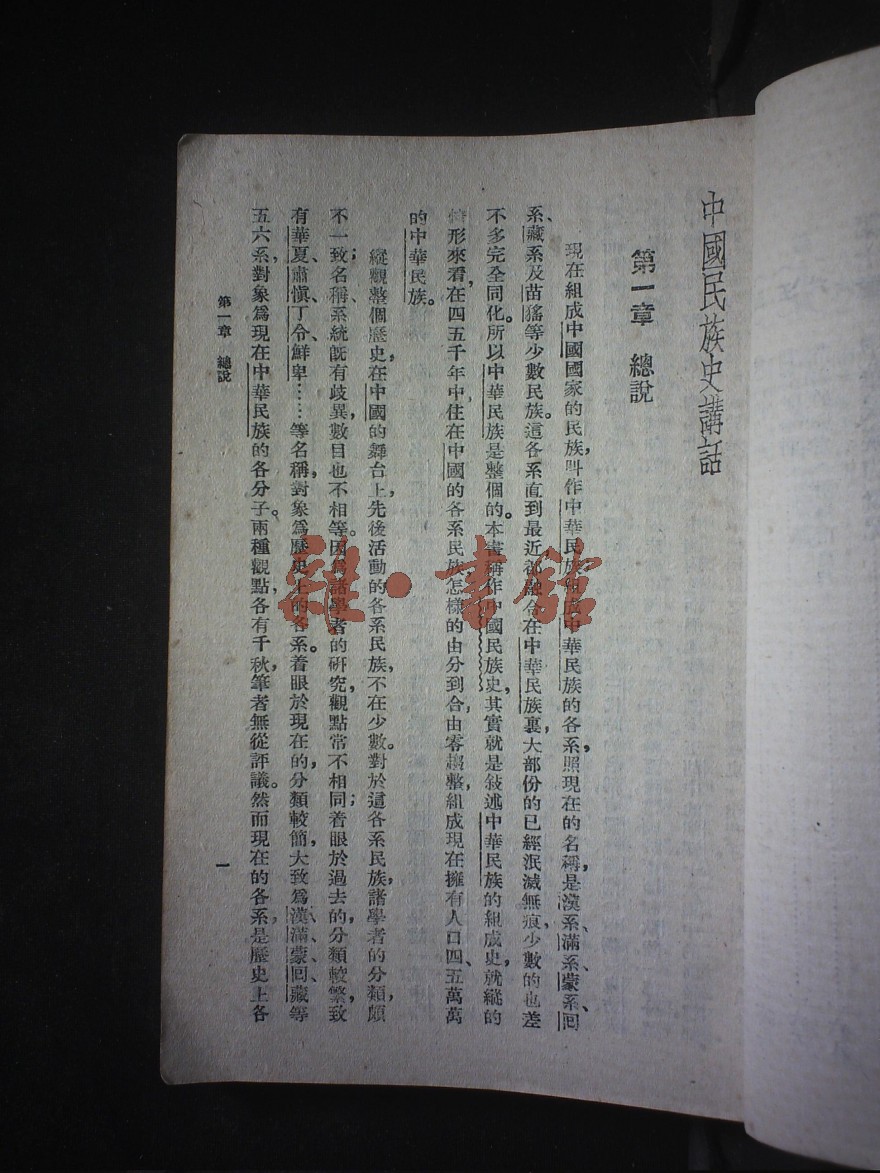 中國民族史講話
第一章　總說
現在組成中國國家的民族，叫作中華民族。組成中華民族的各系，照現在的名稱，是漢系、滿系、蒙系、回
系、藏系及苗猺等少數民族。這各系直到最近都融合在中華民族裏，大部份的已經泯滅無痕，少數的也差
不多完全同化。所以中華民族是整個的。本書稱作中國民族史，其實就是敍述中華民族的組成史，就縱的
情形來看，在四五千年中，住在中國的各系民族，怎樣的由分到合，由零趨整，組成現在擁有人口四、五萬萬
的中華民族。
縱觀整個歷史，在中國的舞台上，先後活動的各系民族，不在少數。對於這各系民族，諸學者的分類，頗
不一致；名稱、系統旣有歧異，數目也不相等。因爲諸學者的硏究，觀點常不相同；着眼於過去的，分類較繁，致
有華夏、肅愼、丁令、鮮卑……等名稱，對象爲歷史上的各系。着眼於現在的，分類較簡，大致爲漢、滿、蒙、回、藏等
五六系，對象爲現在中華民族的各分子。兩種觀點，各有千秋，筆者無從評議。然而現在的各系，是歷史上各
第一章　總說
一
雜·書館